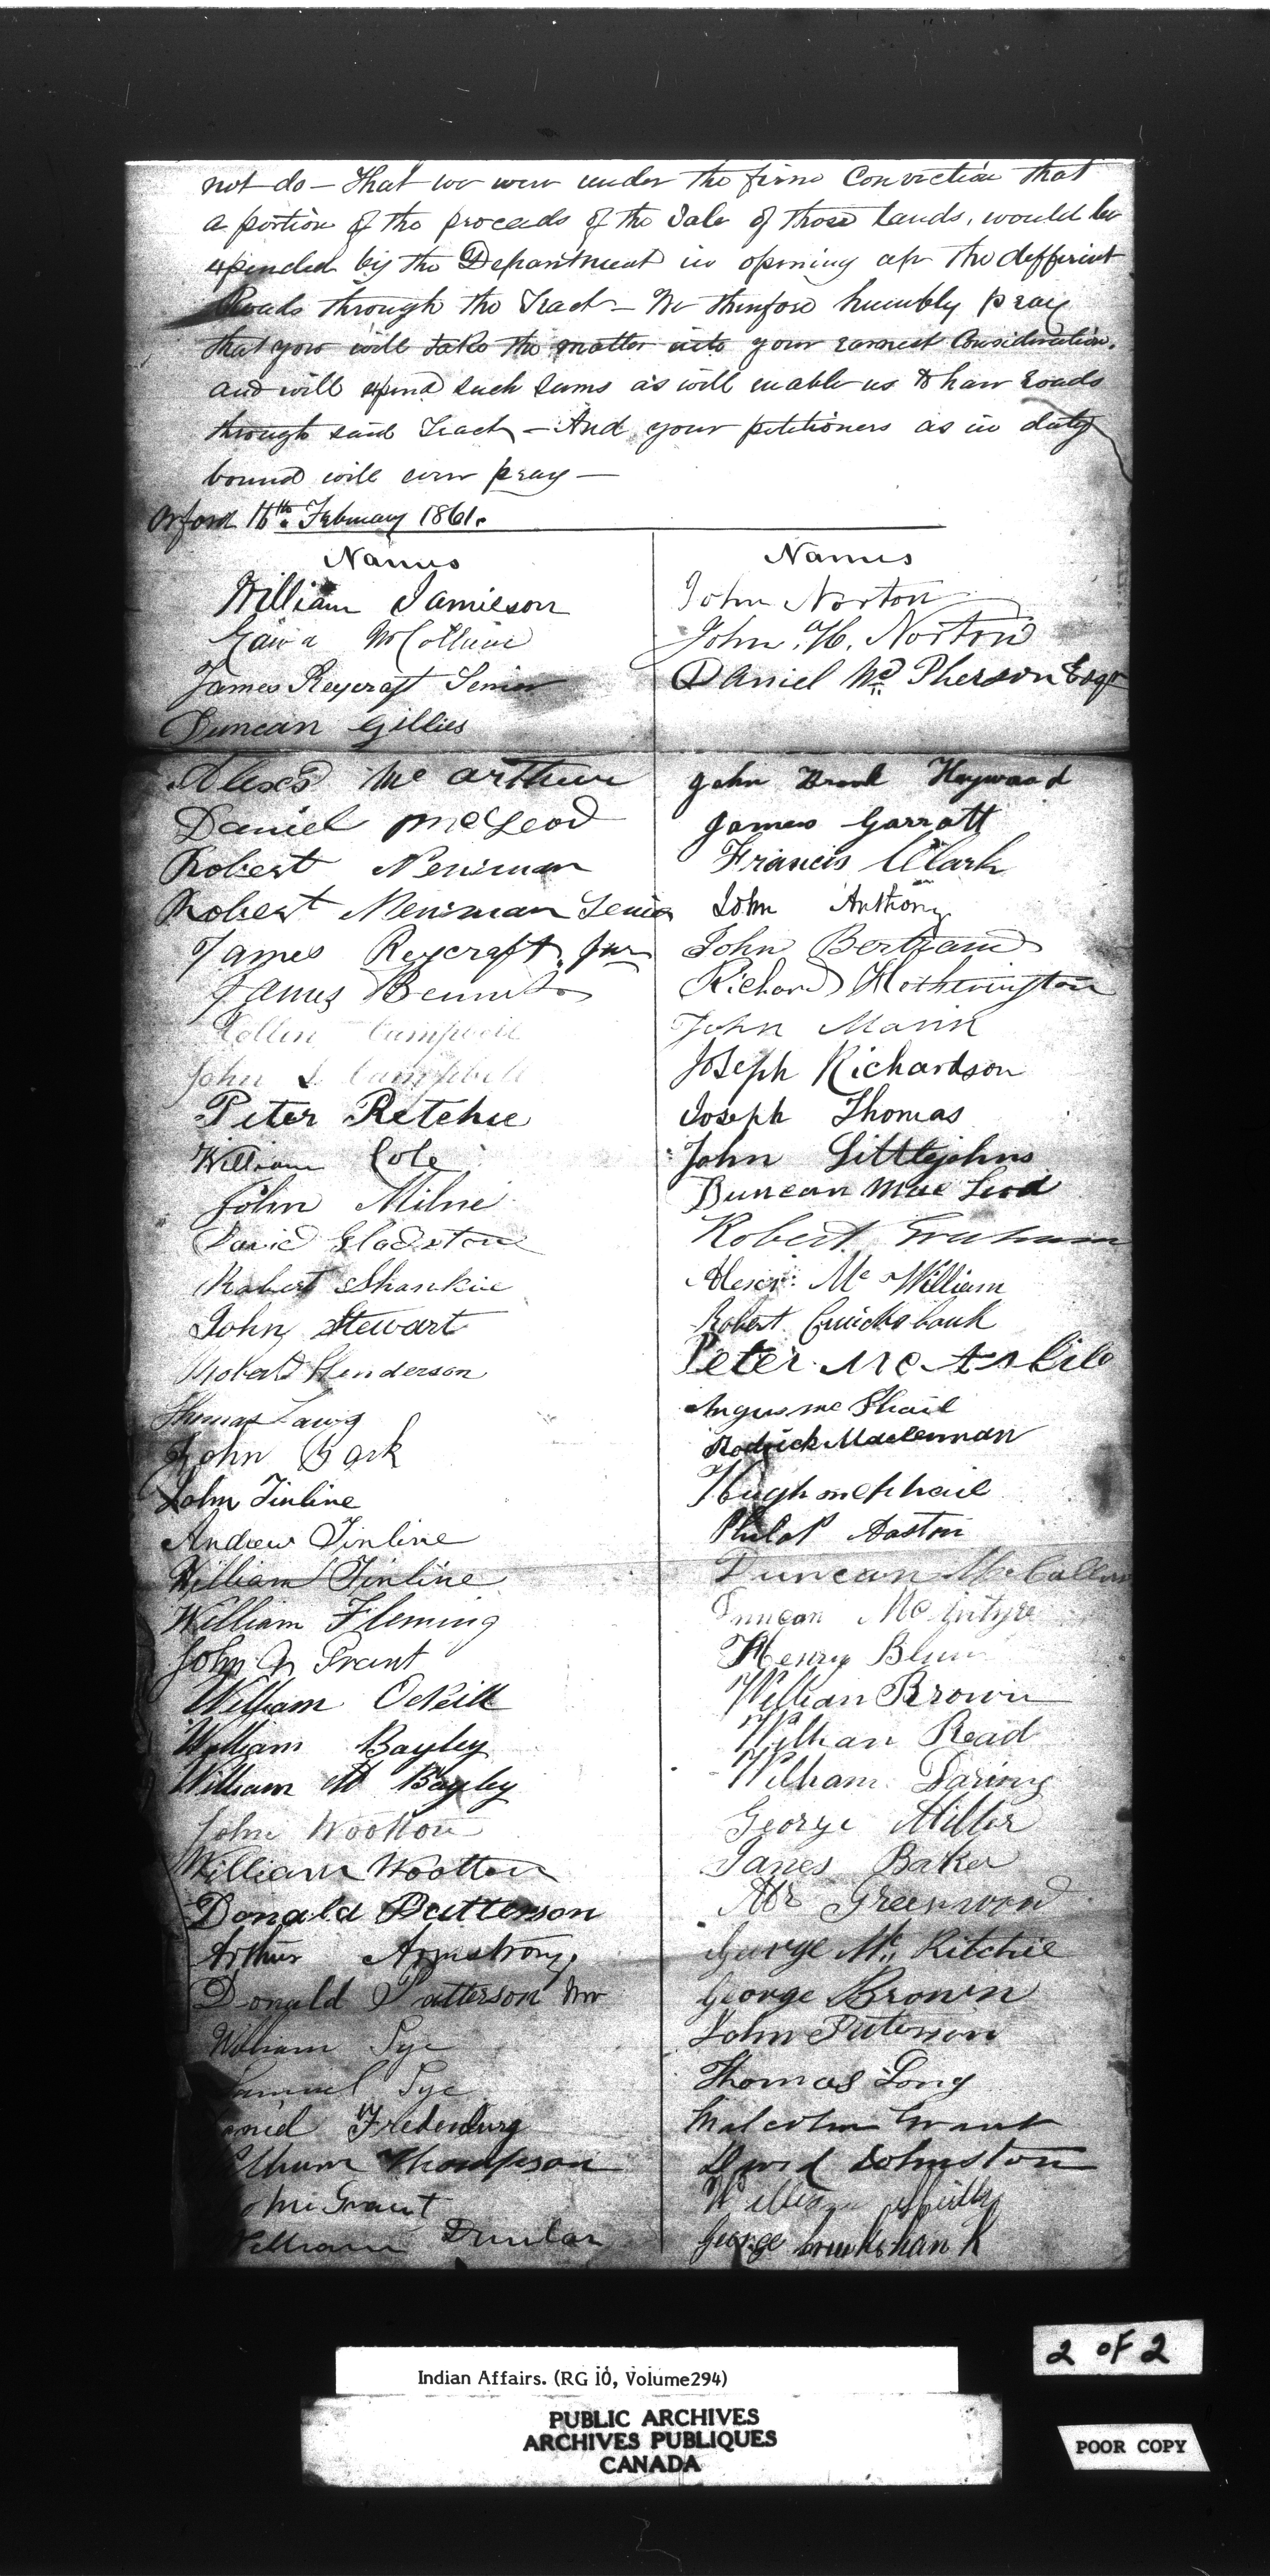 not do — that we were under the firm Conviction that
a portion of the proceeds of the Sale of those lands, would be
expended by the Department in opening up the defferint
Roads through the Tract — We therefore humbly pray
that you will take the matter into your earnest Consideration.
and will expend such sums as will enable us to have roads
through said Tract — And your petitioners as in duty
bound will ever pray —
Orford 16th. February 1861.
Names
William Jamieson
James Reycraft Senior
Duncan Gillies
Alexd Mc arthur
Daniel McLeod
Robert Newman
Robert Newman Senior
James Reycraft Jur
James Bennet
Collin Campbell
John Campbell
Peter Retchie
William Cole
John Milne
David Gladstone
Robert Shankie
John Stewart
Robert Henderson
Thomas
John Park
John Tinline
Andrew Tinline
William Tinline
William Fleming
John Grant
William Oneill
William Bayley
William M Bayley
John Wootton
William Wootten
Donald Patterson
Arthur Armstrong
Donald Patterson
William Pye
Samuel Pye
Fredenburg
William Thompson
John Grant
William Dunlar
Names
John Norton
John H. Norton
Daniel Mc Pherson Esqr
John Heywood
James Garratt
Francis Clark
John Anthony
John Bertrand
Richard Hetherington
John Mann
Joseph Richardson
Joseph Thomas
John Littlejohns
Duncan Mac Leod
Robert Graham
Alexr. Mc William
Robert Cruickshank
Peter Mc Askile
Angus mc Phail
Rodrick Maclennan
Hugh mcphail
Philip Aaston
Duncan McCallum
Duncan McIntyre
Henry
William Brown
William Read
William
George Miller
James Baker
Mr Greenwood
George Mc. Ritchie
George Brown
John Peterson
Thomas Long
Malcolm Grant
David Johnston
William
George Cruckshank
2 OF 2
Indian Affairs. (RG 10, Volume294)
PUBLIC ARCHIVES
ARCHIVES PUBLIQUES
CANADA
POOR COPY